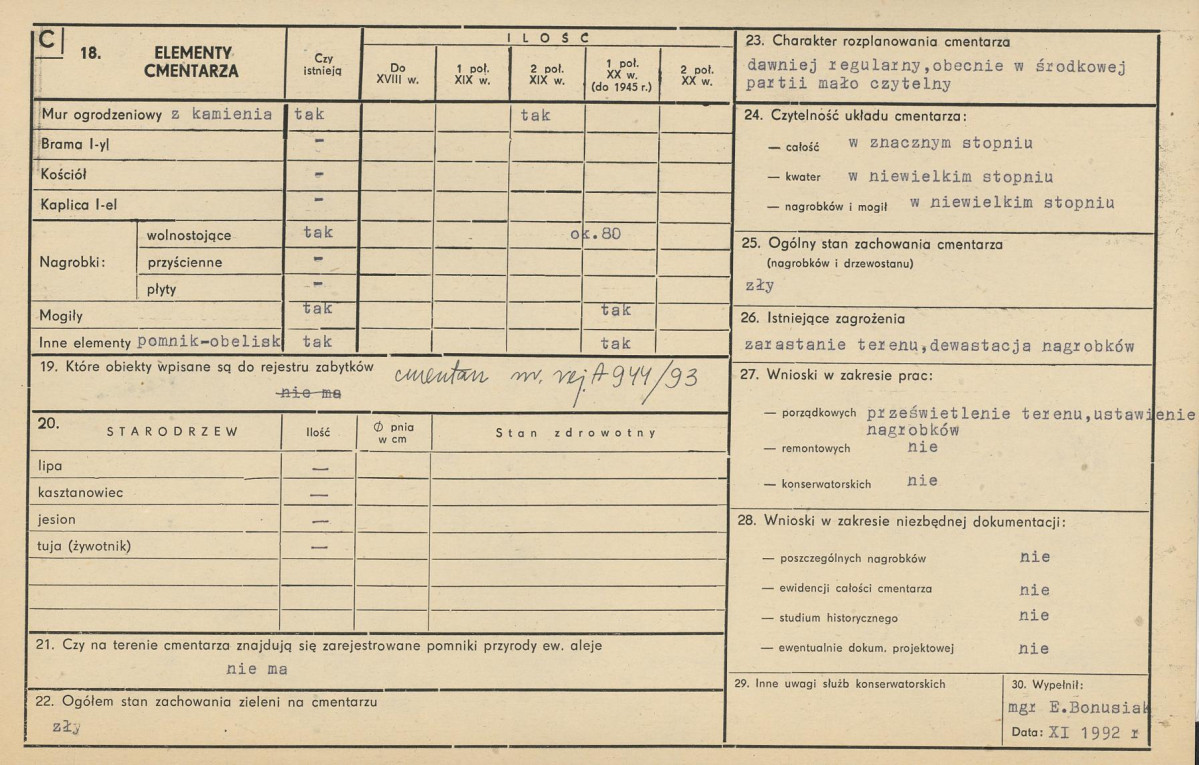 C
18. ELEMENTY CMENTARZA
Czy istnieją
ILOŚĆ
Do XVIII w.
1 poł. XIX w.
2 poł. XIX w.
1 poł. XX w. (do 1945 r.)
2 poł. XX w.
Mur ogrodzeniowy z kamienia tak tak
Brama I-yl -
Kościół -
Kaplica I-el -
Nagrobki:
wolnostojące tak ok.80
przyścienne -
płyty -
Mogiły tak tak
Inne elementy pomnik-obelisk tak tak
19. Które obiekty wpisane są do rejestru zabytków cmentarz nr. rej. A 944/93
nie ma
20. STARODRZEW Ilość Ø pnia w cm Stan zdrowotny
lipa —
kasztanowiec —
jesion —
tuja (żywotnik) —
21. Czy na terenie cmentarza znajdują się zarejestrowane pomniki przyrody ew. aleje
nie ma
22. Ogółem stan zachowania zieleni na cmentarzu
zły
23. Charakter rozplanowania cmentarza
dawniej regularny,obecnie w środkowej
partii mało czytelny
24. Czytelność układu cmentarza:
— całość w znacznym stopniu
— kwater w niewielkim stopniu
— nagrobków i mogił w niewielkim stopniu
25. Ogólny stan zachowania cmentarza
(nagrobków i drzewostanu)
zły
26. Istniejące zagrożenia
zarastanie terenu,dewastacja nagrobków
27. Wnioski w zakresie prac:
— porządkowych prześwietlenie terenu,ustawienie
nagrobków
— remontowych nie
— konserwatorskich nie
28. Wnioski w zakresie niezbędnej dokumentacji:
— poszczególnych nagrobków nie
— ewidencji całości cmentarza nie
— studium historycznego nie
— ewentualnie dokum. projektowej nie
29. Inne uwagi służb konserwatorskich
30. Wypełnił:
mgr E.Bonusiak
Data: XI 1992 r